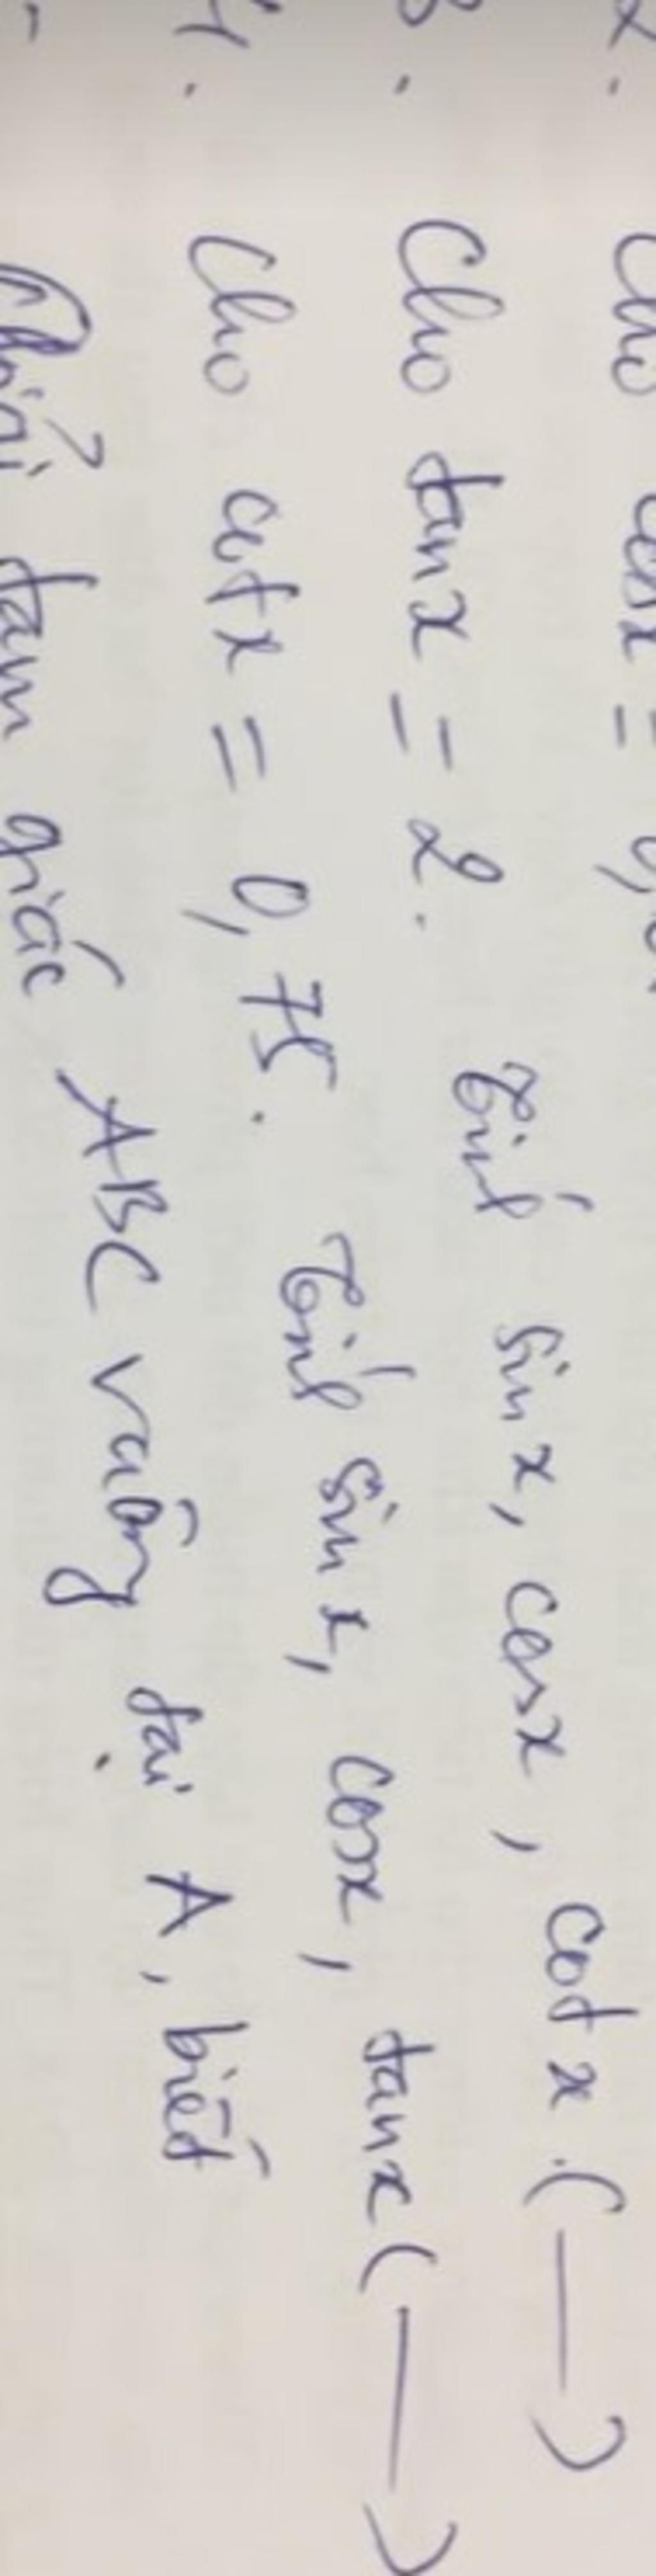 2. Cho cosx = 0,
3. Cho tanx = 2. Tính sinx, cosx, cotx. (—)
4. Cho cotx = 0,75. Tính sinx, cosx, tanx (—)
Giải tam giác ABC vuông tại A, biết